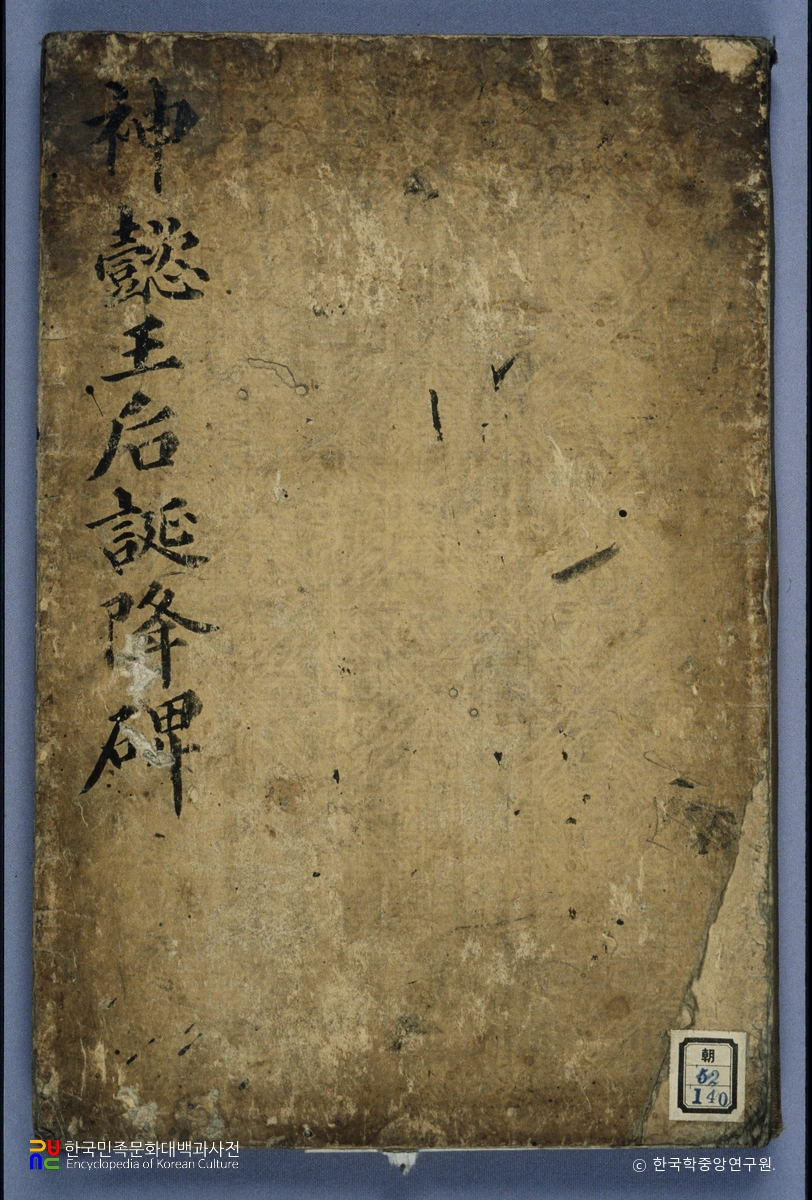 神懿王后誕降碑
朝
52
140
한국민족문화대백과사전
Encyclopedia of Korean Culture
ⓒ 한국학중앙연구원.